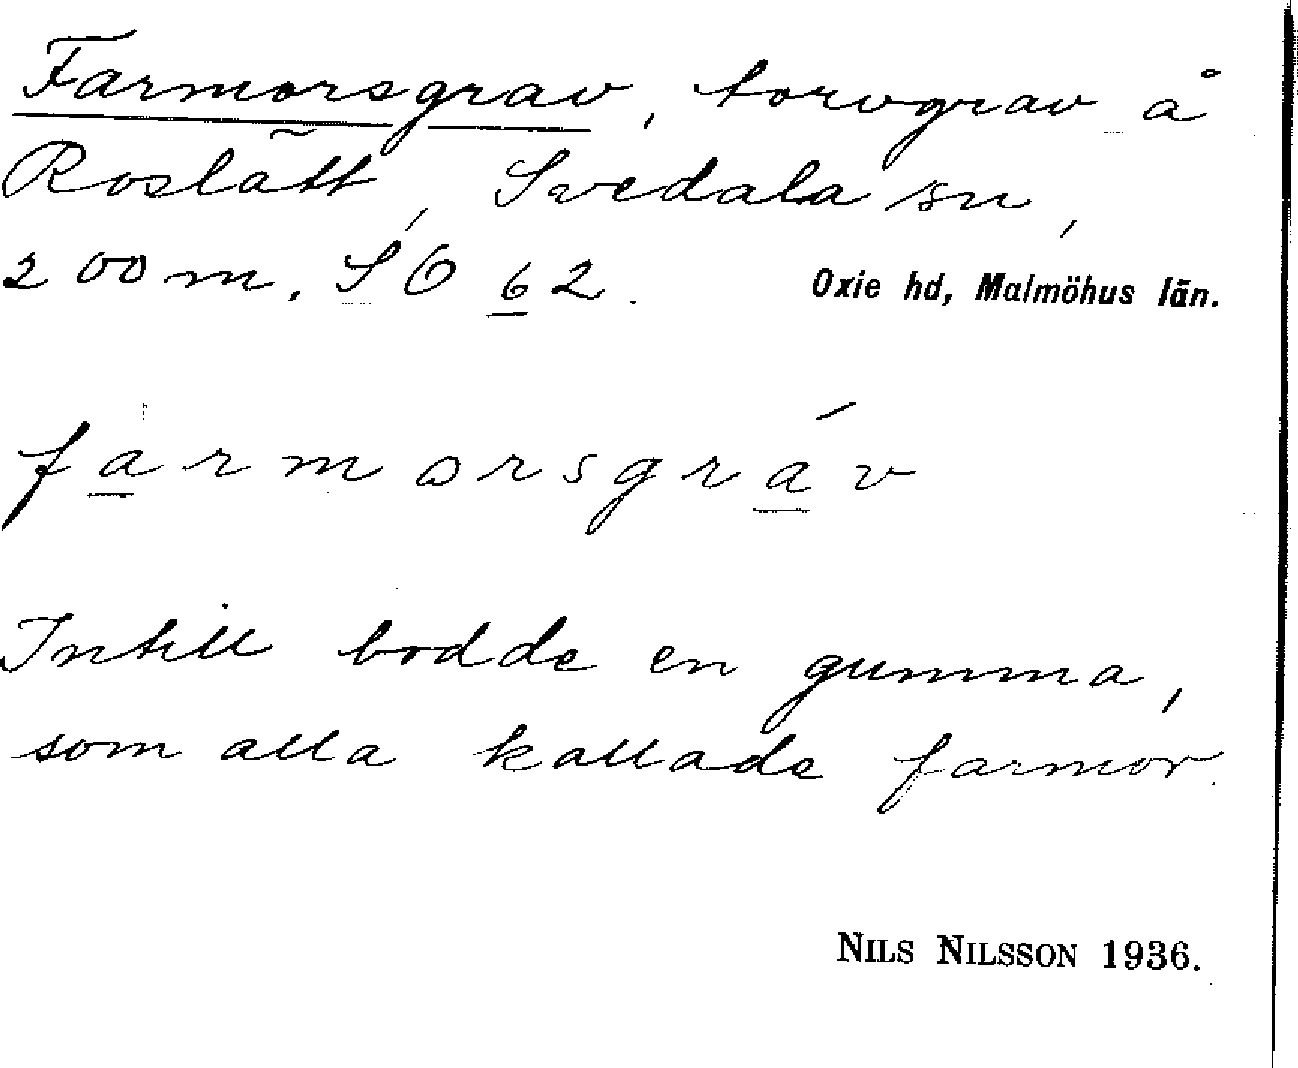 Farmorsgrav, torvgrav å
Roslätt, Svedala sn,
200 m. SO 62.
Oxie hd, Malmöhus län.
fàrmorsgráv
Intill bodde en gumma,
som alla kallade farmor.
NILS NILSSON 1936.